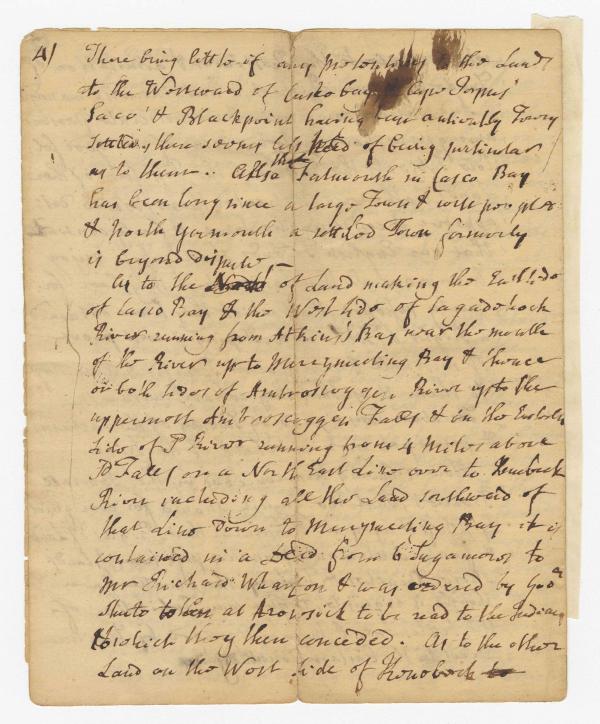 4/ There being little if any pretentions to the Lands
to the Westward of Casco bay Cape Porpus
Saco & Blackpoint having been antiently Towns
settled, there seems less Need of being perticular
as to them. Also that Falmouth in Casco Bay
has been long since a large Town & well peopled
& North Yarmouth a settled Town formerly
is beyond dispute,
As to the of Land making the East side
of Casco Bay & the West side of Sagadehock
River running from Atkins's Bay near the mouth
of the River up to Merrymeeting Bay & thence
on both sides of Ambroscoggen River up to the
uppermost Ambroscoggen Falls & on the Easterly
side of sd River running from 4 Miles above
sd Falls on a North East Line over to Kenebeck
River including all the Land southward of
that Line Down to Merrymeeting Bay it is
contained in a Deed from 6 Sagamores to
Mr Richard Wharton & was ordered by Govr
Shute at Arowsick to be read to the Indians
to which they then conceded. As to the other
Land on the West side of Kenebeck